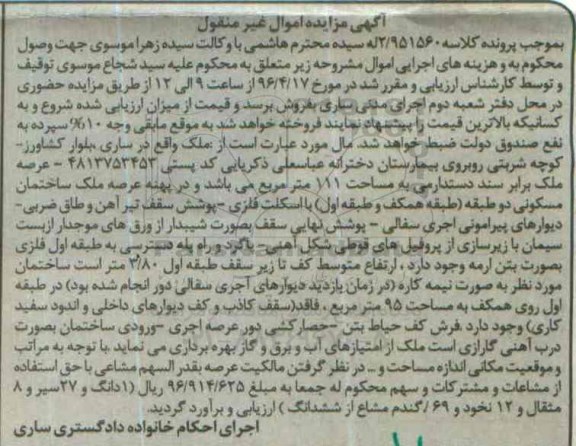 آگهی مزایده اموال غیر منقول
بموجب پرونده کلاسه ۲/۹۵۱۵۶۰له سیده محترم هاشمی با وکالت سیده زهرا موسوی جهت وصول
محکوم به و هزینه های اجرایی اموال مشروحه زیر متعلق به محکوم علیه سید شجاع موسوی توقیف
و توسط کارشناس ارزیابی و مقرر شد در مورخ ۹۶/۴/۱۷ از ساعت ۹ الی ۱۲ از طریق مزایده حضوری
در محل دفتر شعبه دوم اجرای مدنی ساری بفروش برسد و قیمت از میزان ارزیابی شده شروع و به
کسانیکه بالاترین قیمت را پیشنهاد نمایند فروخته خواهد شد به موقع مابقی وجه ۱۰% سپرده به
نفع صندوق دولت ضبط خواهد شد. مال مورد عبارت است از :ملک واقع در ساری ،بلوار کشاورز-
کوچه شربتی روبروی بیمارستان دخترانه عباسعلی ذکریایی کد پستی ۴۸۱۳۷۵۳۴۵۳ - عرصه
ملک برابر سند دستدارمی به مساحت ۱۱۱ متر مربع می باشد و در پهنه عرصه ملک ساختمان
مسکونی دو طبقه (طبقه همکف و طبقه اول) با اسکلت فلزی -پوشش سقف تیر آهن و طاق ضربی-
دیوارهای پیرامونی اجری سفالی - پوشش نهایی سقف بصورت شیبدار از ورق های موجدار ازبست
سیمان با زیرسازی از پروفیل های قوطی شکل آهنی- باکرد و راه پله دسترسی به طبقه اول فلزی
بصورت بتن ارمه وجود دارد ، ارتفاع متوسط کف تا زیر سقف طبقه اول ۲/۸۰ متر است ساختمان
مورد نظر به صورت نیمه کاره (در زمان بازدید دیوارهای آجری سفالی دور انجام شده بود) در طبقه
اول روی همکف به مساحت ۹۵ متر مربع ، فاقد(سقف کاذب و کف دیوارهای داخلی و اندود سفید
کاری) وجود دارد .فرش کف حیاط بتن -حصارکشی دور عرصه اجری -ورودی ساختمان بصورت
درب آهنی گارازی است ملک از امتیازهای آب و برق و گاز بهره برداری می نماید .با توجه به مراتب
و موقعیت مکانی اندازه مساحت و ... در نظر گرفتن مالکیت عرصه بقدر السهم مشاعی با حق استفاده
از مشاعات و مشترکات و سهم محکوم له جمعا به مبلغ ۹۶/۹۱۴/۶۲۵ ریال (۱دانگ و ۲۷سیر و ۸
مثقال و ۱۲ نخود و ۶۹ /گندم مشاع از ششدانگ ) ارزیابی و برآورد گردید.
اجرای احکام خانواده دادگستری ساری